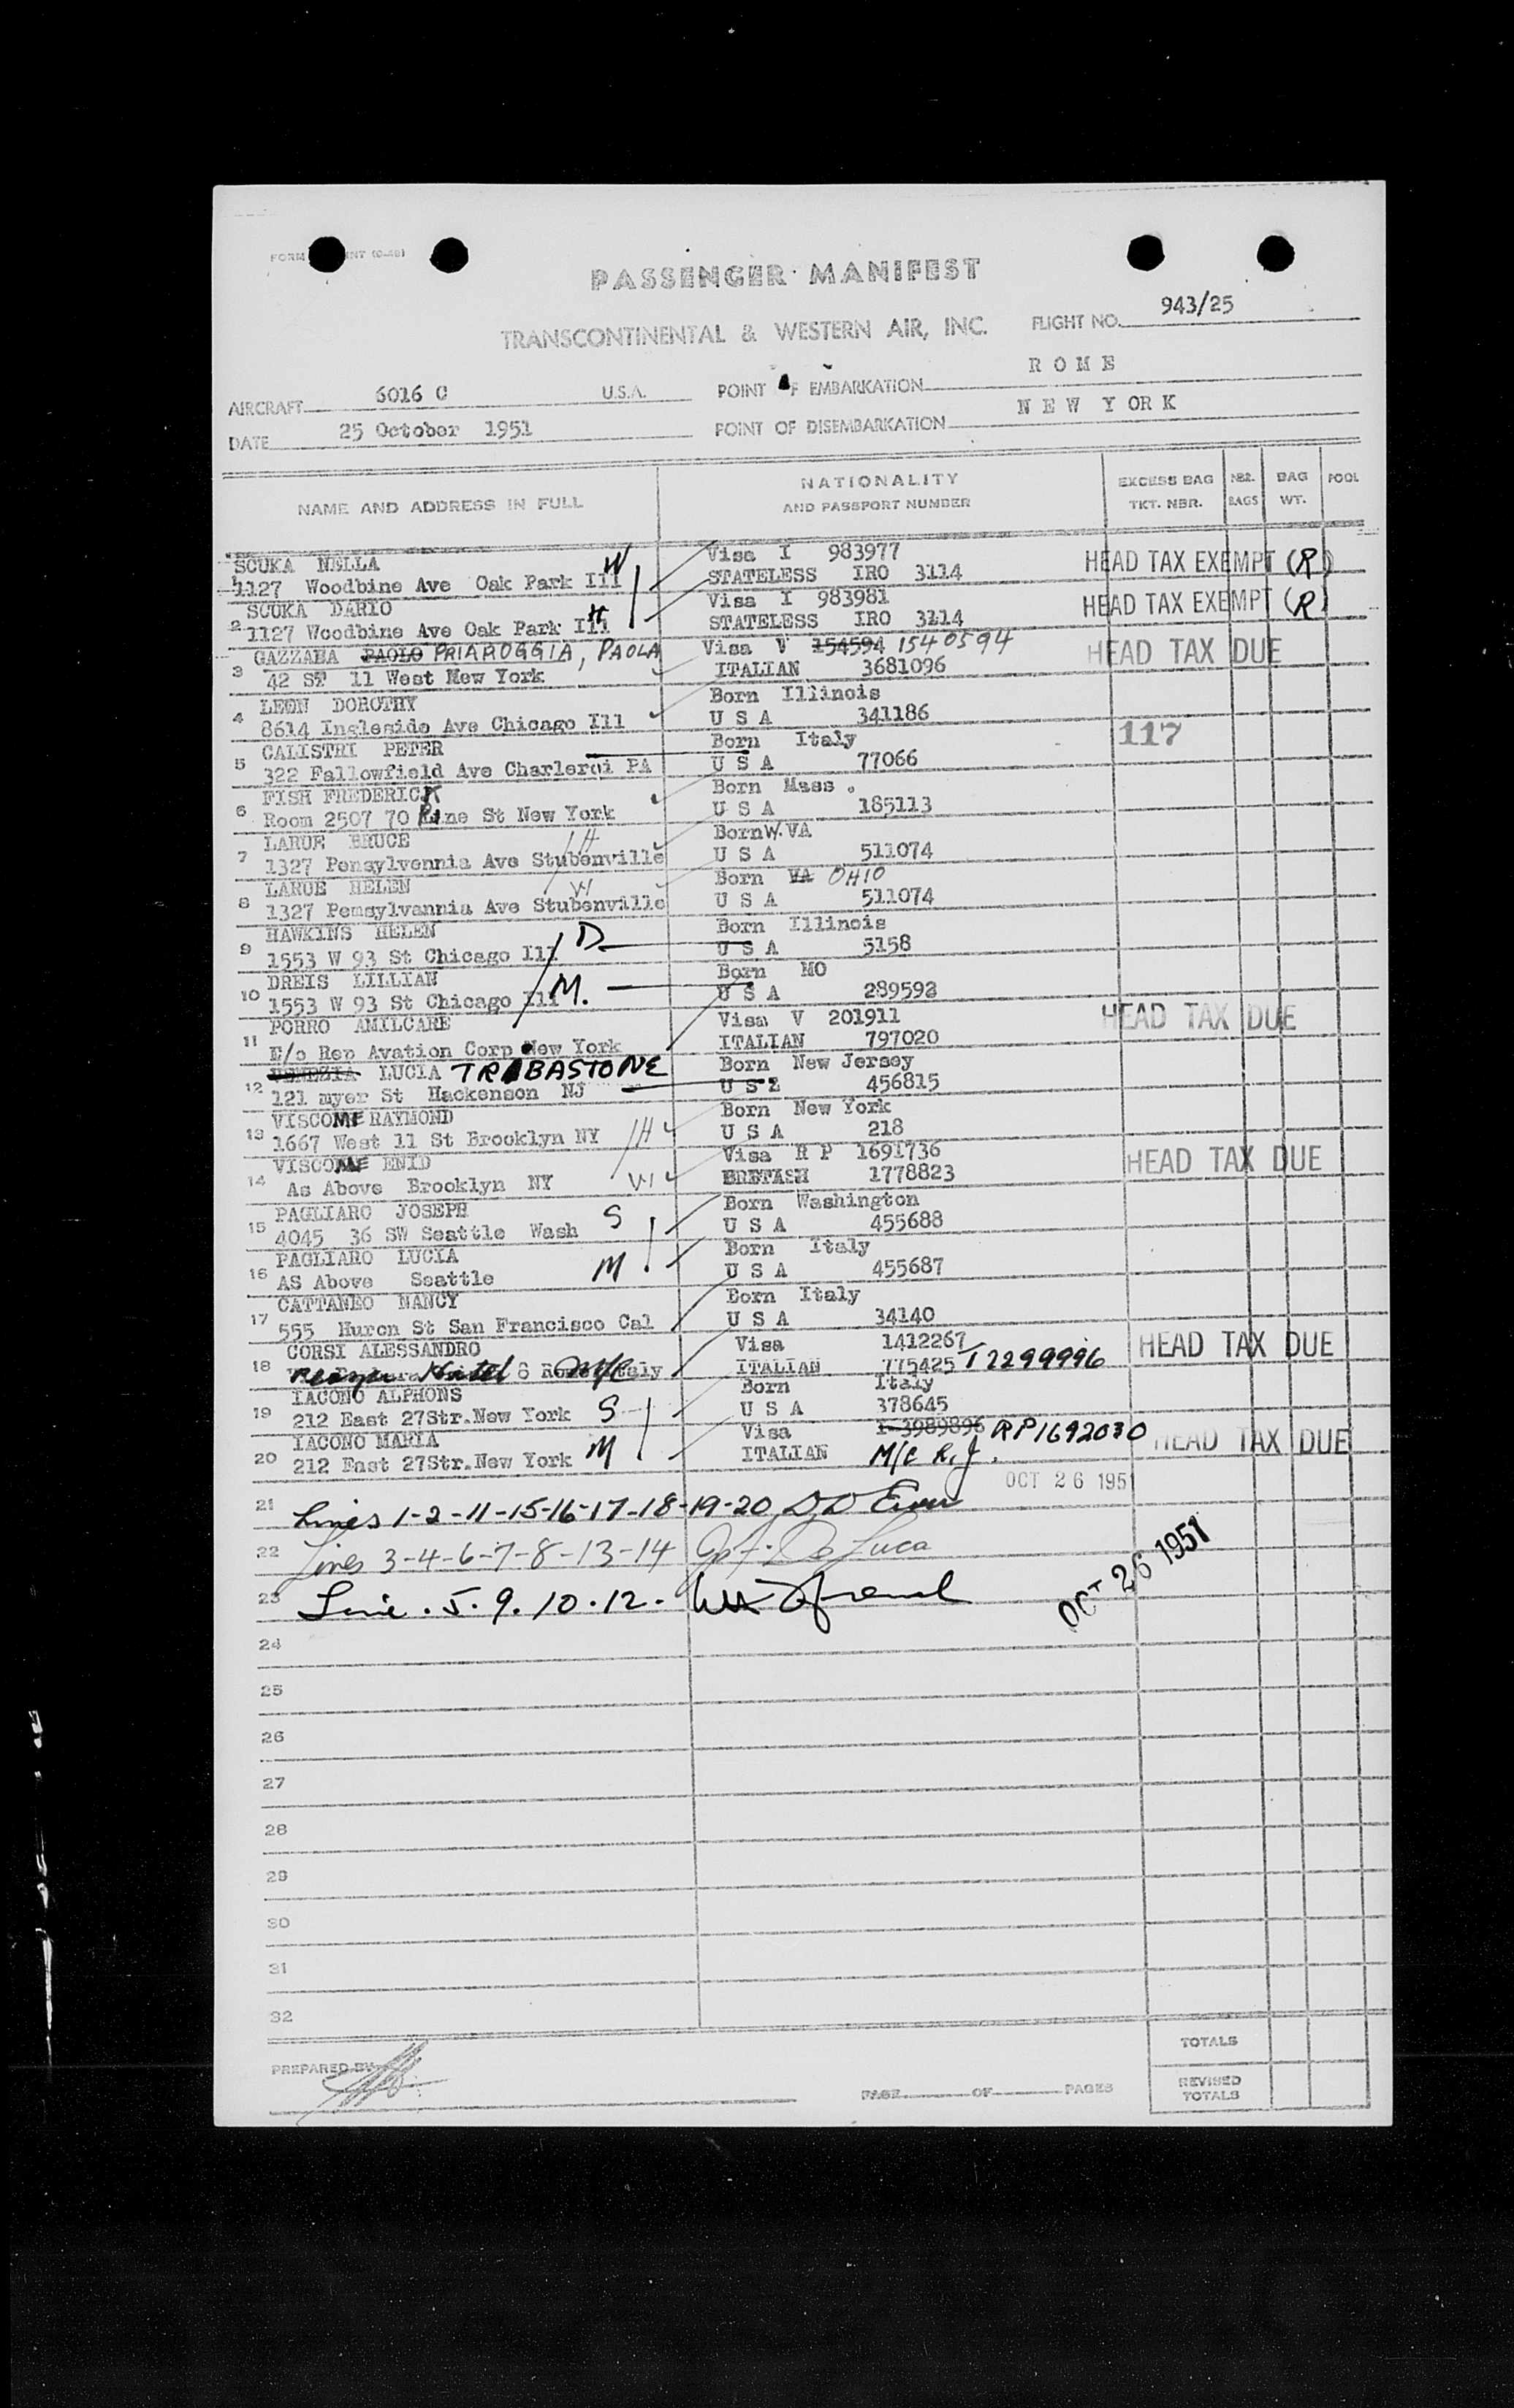 PASSENGER MANIFEST
TRANSCONTINENTAL & WESTERN AIR, INC.
FLIGHT NO. 943/25
AIRCRAFT 6016 C U.S.A.
POINT OF EMBARKATION R O M E
DATE 25 October 1951
POINT OF DISEMBARKATION N E W Y OR K
NAME AND ADDRESS IN FULL
NATIONALITY AND PASSPORT NUMBER
EXCESS BAG TKT. NBR.
NBR. BAGS
BAG WT.
POOL
SCUKA NELLA W Visa I 983977 HEAD TAX EXEMPT (R)
1 1127 Woodbine Ave Oak Park Ill STATELESS IRO 3114
SCUKA DARIO H Visa I 983981 HEAD TAX EXEMPT (R)
2 1127 Woodbine Ave Oak Park Ill STATELESS IRO 3114
GAZZABA PAOLO PRIAROGGIA, PAOLA Visa V 154594 1540594 HEAD TAX DUE
3 42 ST 11 West New York ITALIAN 3681096
LEON DOROTHY Born Illinois
4 8614 Ingleside Ave Chicago Ill U S A 341186
CALISTRI PETER Born Italy 117
5 322 Fallowfield Ave Charleroi PA U S A 77066
FISH FREDERICK Born Mass.
6 Room 2507 70 Pine St New York U S A 185113
LARUE BRUCE H Born W. VA
7 1327 Pensylvennia Ave Stubenville U S A 511074
LARUE HELEN W Born VA OHIO
8 1327 Pemsylvannia Ave Stubenville U S A 511074
HAWKINS HELEN D Born Illinois
9 1553 W 93 St Chicago Ill U S A 5158
DREIS LILLIAN M. Born MO
10 1553 W 93 St Chicago Ill U S A 289592
PORRO AMILCARE Visa V 201911 HEAD TAX DUE
11 E/o Rep Avation Corp New York ITALIAN 797020
VENEZIA LUCIA TRABASTONE Born New Jersey
12 121 myer St Hackenson NJ U S 456815
VISCOME RAYMOND Born New York
13 1667 West 11 St Brooklyn NY H U S A 218
VISCOME ENID Visa R P 1691736 HEAD TAX DUE
14 As Above Brooklyn NY W BRETASH 1778823
PAGLIARO JOSEPH S Born Washington
15 4045 36 SW Seattle Wash U S A 455688
PAGLIARO LUCIA M Born Italy
16 AS Above Seattle U S A 455687
CATTANEO NANCY Born Italy
17 555 Huron St San Francisco Cal U S A 34140
CORSI ALESSANDRO Visa 1412267 HEAD TAX DUE
18 Hotel Italy ITALIAN 775425 T 2299996
IACONO ALPHONS Born Italy
19 212 East 27Str.New York S U S A 378645
IACONO MARIA Visa I-3989896 RP1692030 HEAD TAX DUE
20 212 East 27Str.New York M ITALIAN M/C R.J.
OCT 26 1951
21 Lines 1-2-11-15-16-17-18-19-20
22 Lines 3-4-6-7-8-13-14 De Luca
23 Line. 5. 9. 10. 12.
OCT 26 1951
24
25
26
27
28
29
30
31
32
PREPARED BY
PAGE OF PAGES
TOTALS
REVISED TOTALS